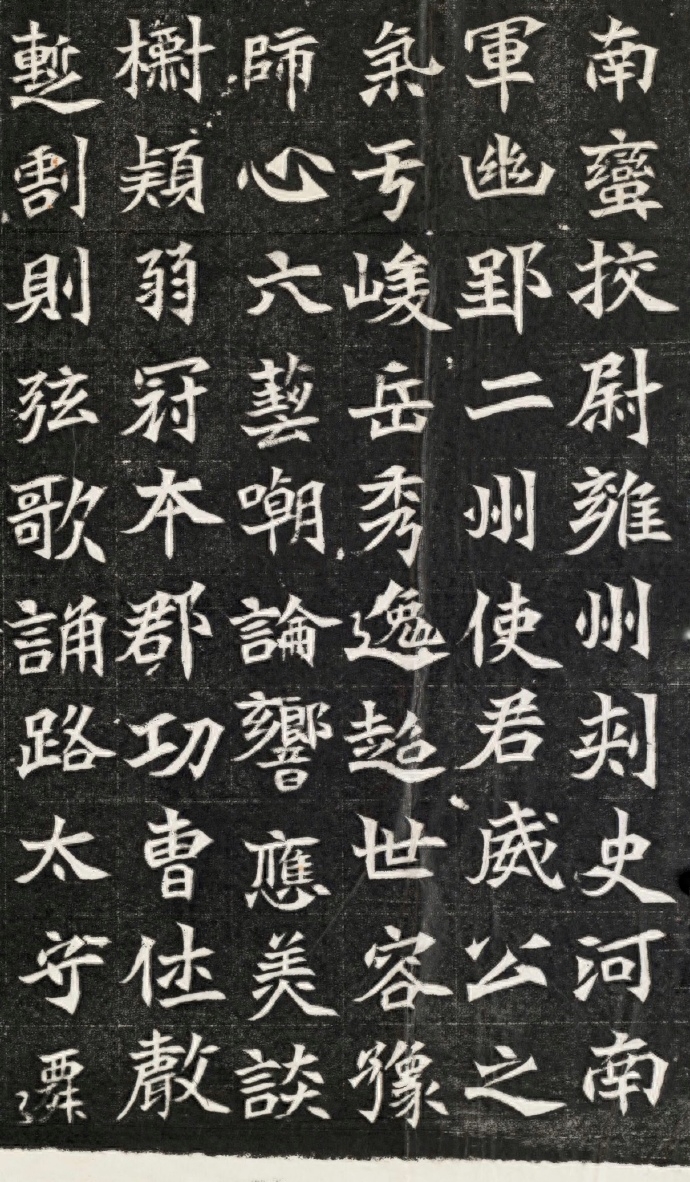 南蠻挍尉雍州刺史河南
軍幽郢二州使君威公之
氣亏峻岳秀逸超世容豫
師心六藝嘲論響應美談
穎弱冠本郡功曹
蹔割則弦歌誦路太守遷